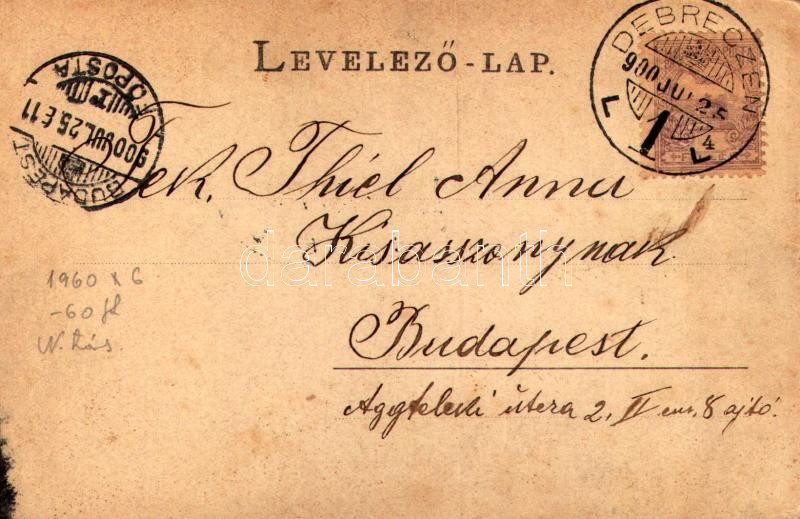 LEVELEZŐ-LAP.
DEBRECZEN
900 JUL 25
1
L L
4
BUDAPEST
900 JUL. 25. É. 11
FŐPOSTA
Tek. Thiél Anna
Kisasszonynak
Budapest.
Aggteleki utcza 2, II em. 8 ajtó.
1960 X 6
-60 fl
darabanth